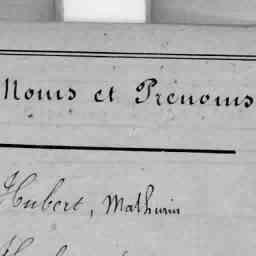 Noms et Prénoms
Hubert, Mathurin